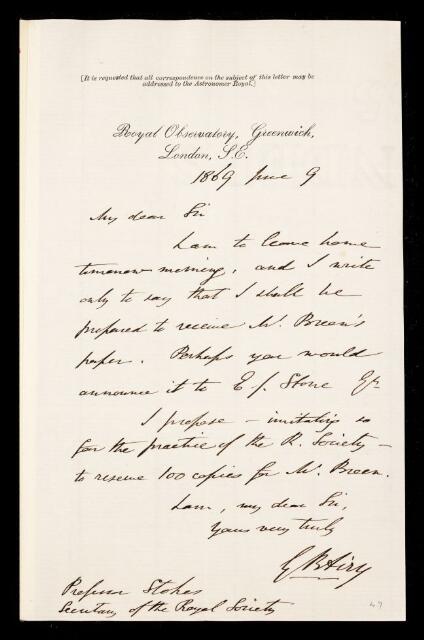 [It is requested that all correspondence on the subject of this letter may be
addressed to the Astronomer Royal.]
Royal Observatory, Greenwich,
London, S.E.
1869 June 9
My dear Sir
I am to leave home
tomorrow morning, and I write
only to say that I shall be
prepared to receive Mr. Breen's
paper. Perhaps you would
announce it to E. J. Stone Esqr
I propose — imitating so
far the practice of the R. Society —
to reserve 100 copies for Mr. Breen.
I am, my dear Sir,
Yours very truly
G B Airy
Professor Stokes
Secretary of the Royal Society
47